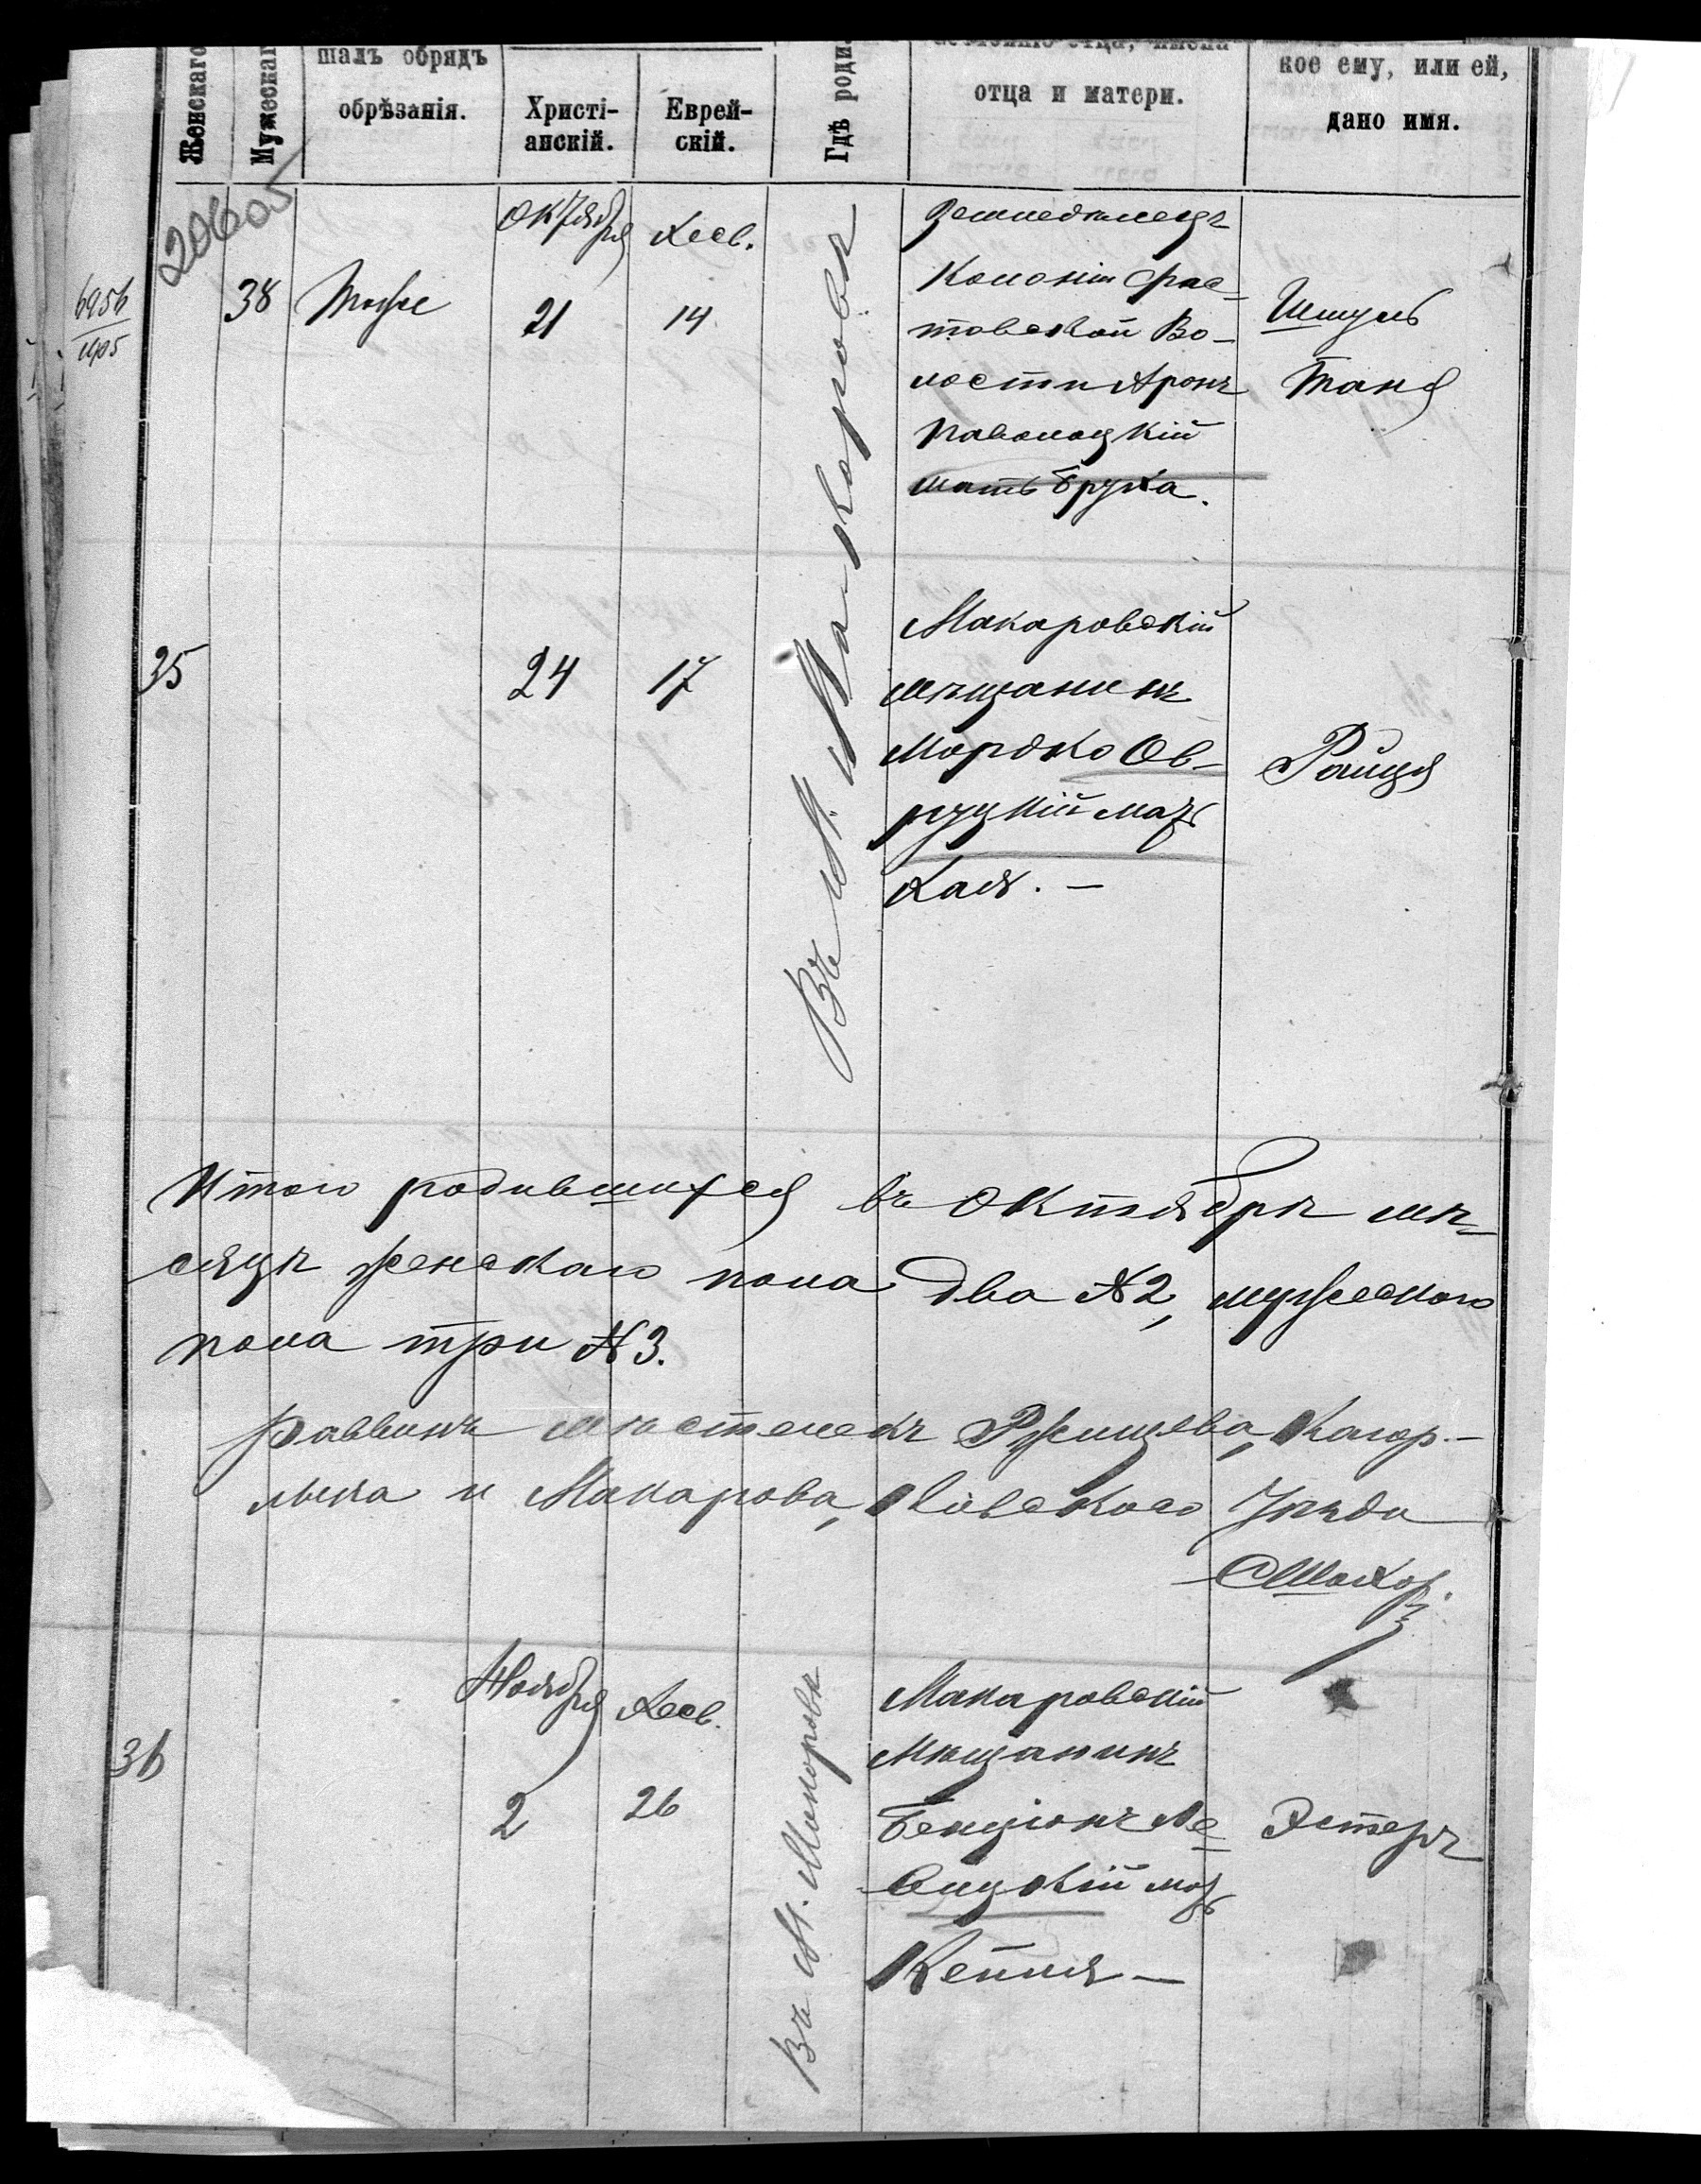 Женскаго
Мужескаг
шалъ обрядъ
обрѣзанія.
Христі-
анскій.
Еврей-
скій.
Гдѣ роди
отца и матери.
кое ему, или ей,
дано имя.
20605
6956
38
Тоже
Октября
21
Хесв.
14
Въ М. Макаровѣ
Земледѣлецъ
Колоніи Фас-
товской Во-
лости Аронъ
Паволоцкій
мать Бруха.
Шмуль
Таня
35
24
17
Макаровскій
мѣщанинъ
Мордко Ов-
руцкій мать
Хая. —
Раиця
Итого родившихся въ Октябрѣ мѣ-
сяцѣ женскаго пола два №2, мужескаго
пола три №3.
Раввинъ мѣстечекъ Ржищева, Кагар-
лыка и Макарова, Кіевскаго Уѣзда
36
Ноября
2
Хесв.
26
Въ М. Макаровѣ
Макаровскій
Мѣщанинъ
Бенціонъ Ле-
мать
—
Эстеръ